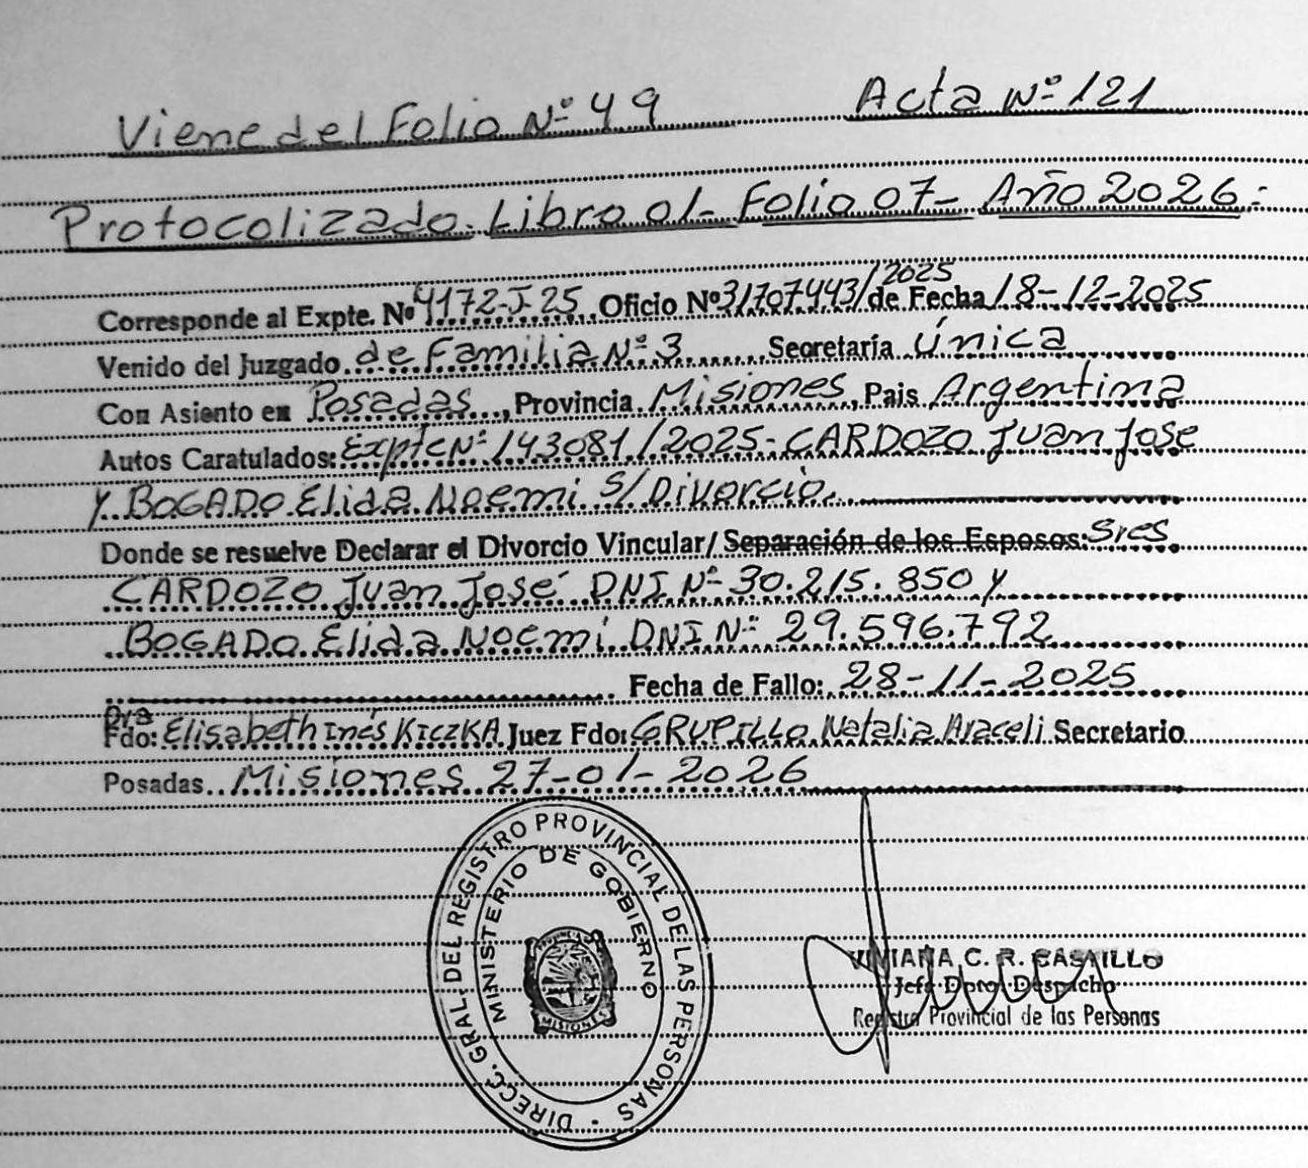 Viene del Folio Nº 49 Acta Nº 121
Protocolizado. Libro 01- Folio 07- Año 2026.-
Corresponde al Expte. Nº 4172-J-25 Oficio Nº 31707443/2025 de Fecha 18-12-2025
Venido del Juzgado de Familia Nº 3 Secretaría única
Con Asiento en Posadas, Provincia Misiones, Pais Argentina
Autos Caratulados: Expte Nº 143081/2025- CARDOZO Juan Jose
y BOGADO Elida Noemi S/Divorcio.
Donde se resuelve Declarar el Divorcio Vincular/ Separación de los Esposos: Sres
CARDOZO Juan José DNI Nº 30.215.850 y
BOGADO Elida Noemi DNI Nº 29.596.792
Fecha de Fallo: 28-11-2025
Dra
Fdo: Elisabeth Inés KICZKA Juez Fdo: GRUPILLO Natalia Araceli Secretario
Posadas Misiones 27-01-2026
DIRECC. GRAL. DEL REGISTRO PROVINCIAL DE LAS PERSONAS
MINISTERIO DE GOBIERNO
MISIONES
VIVIANA C. R. CASTILLO
Jefa Dpto. Despacho
Registro Provincial de las Personas